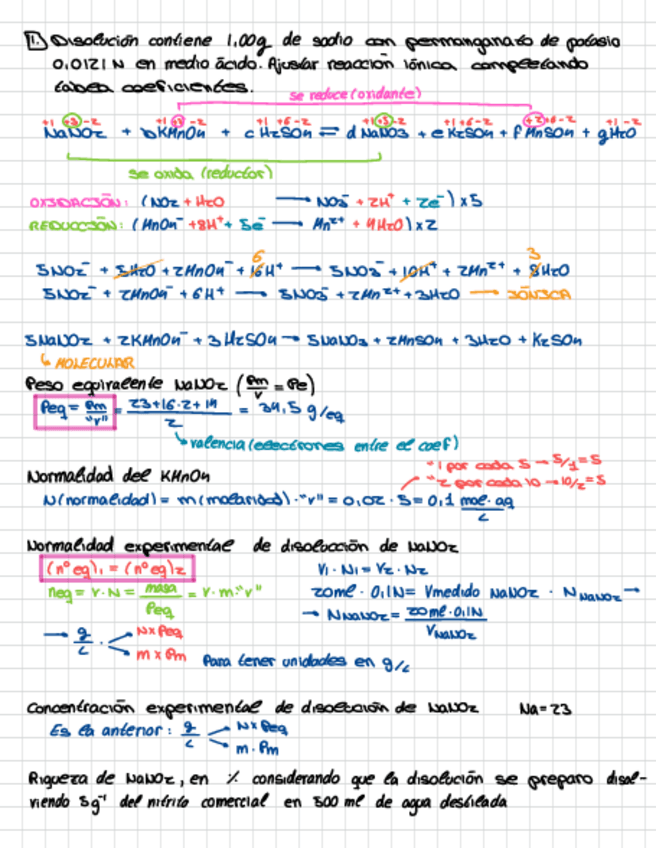 1. Disolución contiene 1,00g de sodio con permanganato de potasio
0,0121 N en medio ácido. Ajustar reacción iónica completando
tabla coeficientes.
se reduce (oxidante)
+1 +3 -2 +1 +7 -2 +1 +6 -2 +1 +5 -2 +1 +6 -2 +2 +6 -2 +1 -2
NaNO2 + bKMnO4 + cH2SO4 ⇌ dNaNO3 + eK2SO4 + fMnSO4 + gH2O
se oxida (reductor)
OXIDACIÓN: (NO2 + H2O → NO3⁻ + 2H⁺ + 2e⁻) x5
REDUCCIÓN: (MnO4⁻ + 8H⁺ + 5e⁻ → Mn²⁺ + 4H2O) x2
6 3
5NO2⁻ + 5H2O + 2MnO4⁻ + 16H⁺ → 5NO3⁻ + 10H⁺ + 2Mn²⁺ + 8H2O
5NO2⁻ + 2MnO4⁻ + 6H⁺ → 5NO3⁻ + 2Mn²⁺ + 3H2O → IÓNICA
5NaNO2 + 2KMnO4⁻ + 3H2SO4 → 5NaNO3 + 2MnSO4 + 3H2O + K2SO4
↳ MOLECULAR
Peso equivalente NaNO2 (Pm/v = Pe)
Peq = Pm/"v" = (23+16·2+14)/2 = 34,5 g/eq
↳ valencia (electrones entre el coef)
Normalidad del KMnO4
"1 por cada 5 → 5/1 = 5
"2 por cada 10 → 10/2 = 5
N (normalidad) = m (molaridad) · "v" = 0,02 · 5 = 0,1 mol·aq/L
Normalidad experimental de disolución de NaNO2
(nº eq)1 = (nº eq)2 V1 · N1 = V2 · N2
neq = V·N = masa/Peq = V·m·"v" 20ml · 0,1N = Vmedido NaNO2 · N NaNO2 →
→ N NaNO2 = 20ml·0,1N/V NaNO2
→ g/L · N x Peq
m x Pm Para tener unidades en g/L
Concentración experimental de disolución de NaNO2 Na = 23
Es la anterior: g/L N x Peq
m · Pm
Riqueza de NaNO2, en % considerando que la disolución se preparo disol-
viendo 5g⁻¹ del nitrito comercial en 500 ml de agua destilada